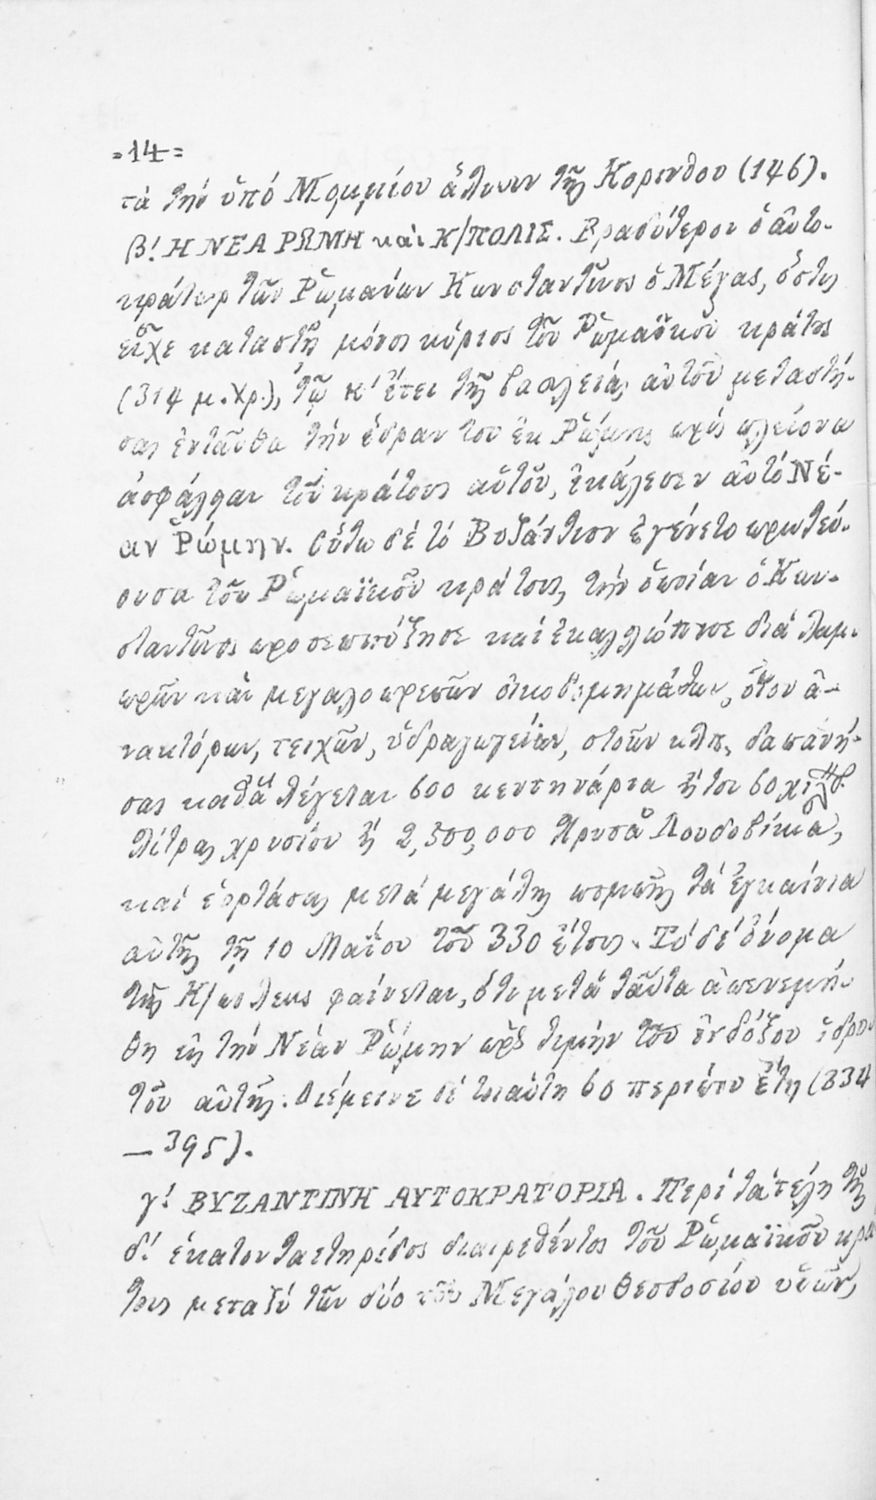 =14=
τὰ τήν ὑπό Μομμίου ἅλωσιν τῆς Κορίνθου (146).
β! Η ΝΕΑ ΡΩΜΗ καὶ Κ/ΠΟΛΙΣ. Βραδύτερον ὁ αὐτο-
κράτωρ τῶν Ῥωμαίων Κωνσταντῖνος ὁ Μέγας, ὅστις
εἶχε καταστῆ μόνος κύριος τοῦ Ῥωμαϊκοῦ κράτους
(314 μ.Χρ.), τῷ κ' ἔτει τῆς βασιλείας αὐτοῦ μεταστή-
σας ἐνταῦθα τήν ἕδραν του ἐκ Ῥώμης πρός πλείονα
ἀσφάλειαν τοῦ κράτους αὐτοῦ, ἐκάλεσεν αὐτό Νέ-
αν Ῥώμην. Οὕτω δέ τό Βυζάντιον ἐγένετο πρωτεύ-
ουσα τοῦ Ῥωμαϊκοῦ κράτους, τήν ὁποίαν ὁ Κων-
σταντῖνος προσεπηύξησε καί ἐκαλλιώπισε διά λαμ-
πρῶν καὶ μεγαλοπρεπῶν οἰκοδομημάτων, οἷον ἀ-
νακτόρων, τειχῶν, ὑδραγωγείων, στοῶν κλπ, δαπανή-
σας καθἅ λέγεται 600 κεντηνάρια ἤτοι 60 χιλ.
λίτρας χρυσίου ἤ 2,500,000 Χρυσᾶ Λουδοβίκια,
καί ἑορτάσας μετά μεγάλης πομπῆς τά ἐγκαίνια
αὐτῆς τῇ 10 Μαΐου τοῦ 330 ἔτους. Τό δέ ὄνομα
τῆς Κ/πόλεως φαίνεται, ὅτι μετά ταῦτα ἀπενεμή-
θη εἰς τήν Νέαν Ῥώμην πρός τιμήν τοῦ ἐνδόξου ἱδρυ-
τοῦ αὐτῆς. Διέμεινε δέ τοιαύτη 60 περίπου ἔτη (334
— 395).
γ! ΒΥΖΑΝΤΙΝΗ ΑΥΤΟΚΡΑΤΟΡΙΑ. Περί τά τέλη τῆς
δ! ἑκατονταετηρίδος διαιρεθέντος τοῦ Ῥωμαϊκοῦ κρά
τους μεταξύ τῶν δύο τοῦ Μεγάλου Θεοδοσίου υἱῶν,